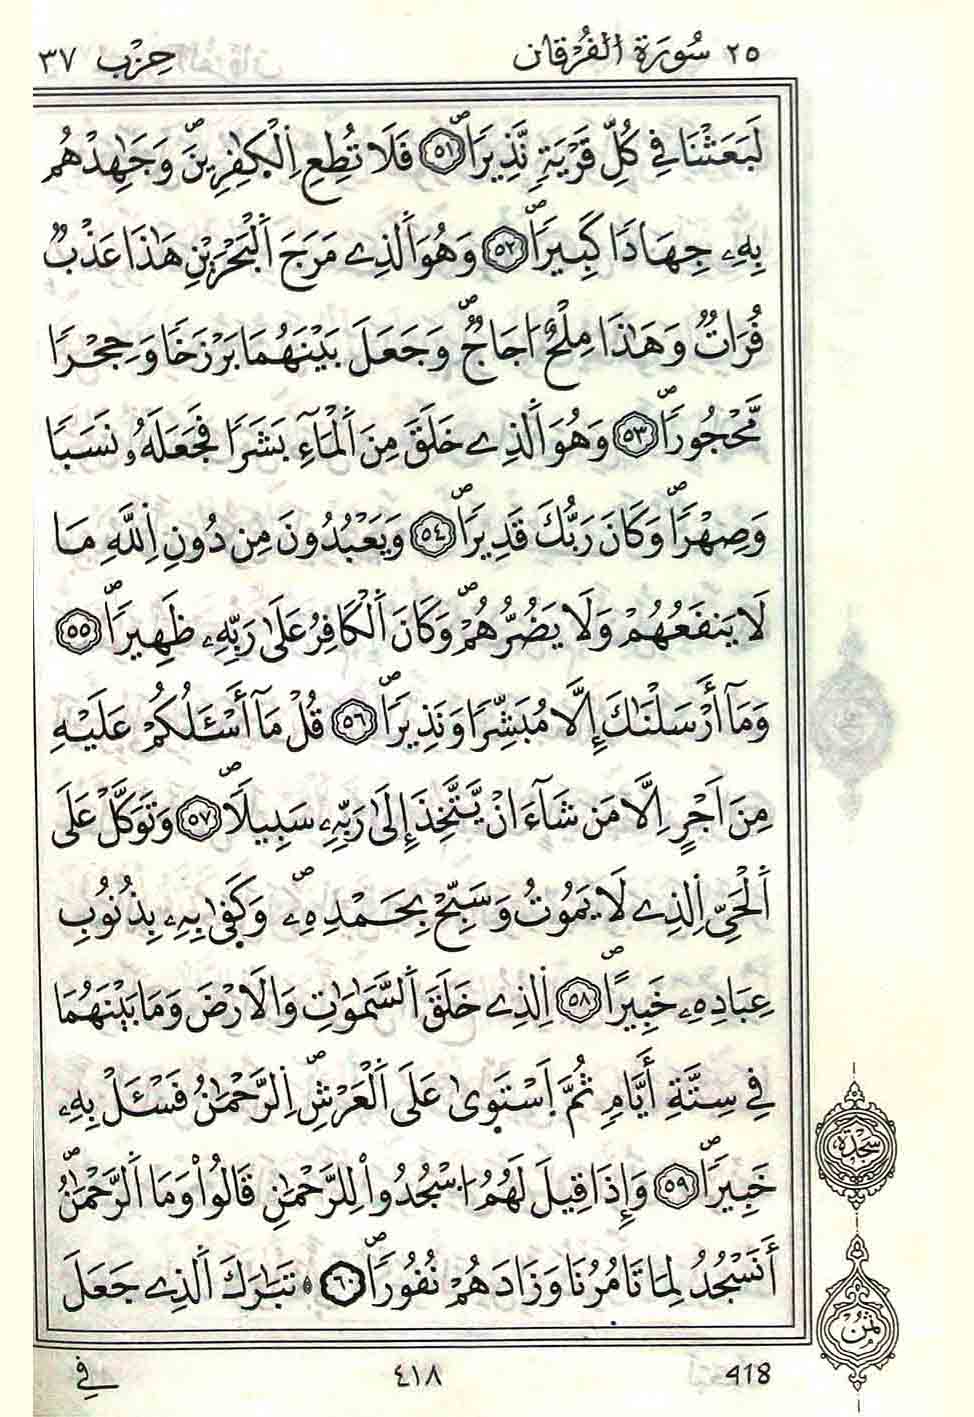 ٢٥ سُورَةُ الْفُرْقَانِ حِزْب ٣٧
لَبَعَثْنَا فِے كُلِّ قَرْيَةٖ نَّذِيراٗۖ ٥١ فَلَا تُطِعِ اِ۬لْكٰفِرِينَۖ وَجَٰهِدْهُم
بِهِۦ جِهَاداٗ كَبِيراٗۖ ٥٢ وَهُوَ اَ۬لذِے مَرَجَ اَ۬لْبَحْرَيْنِ هَٰذَا عَذْبٞ
فُرَاتٞ وَهَٰذَا مِلْحٌ اُجَاجٞۖ وَجَعَلَ بَيْنَهُمَا بَرْزَخاٗ وَحِجْراٗ
مَّحْجُوراٗۖ ٥٣ وَهُوَ اَ۬لذِے خَلَقَ مِنَ اَ۬لْمَآءِ بَشَراٗ فَجَعَلَهُۥ نَسَباٗ
وَصِهْراٗۖ وَكَانَ رَبُّكَ قَدِيراٗۖ ٥٤ وَيَعْبُدُونَ مِن دُونِ اِ۬للَّهِ مَا
لَا يَنفَعُهُمْ وَلَا يَضُرُّهُمْۖ وَكَانَ اَ۬لْكَافِرُ عَلَىٰ رَبِّهِۦ ظَهِيراٗۖ ٥٥
وَمَآ أَرْسَلْنَٰكَ إِلَّا مُبَشِّراٗ وَنَذِيراٗۖ ٥٦ قُلْ مَآ أَسْـَٔلُكُمْ عَلَيْهِ
مِنَ اَجْرٍ اِلَّا مَن شَآءَ اَنْ يَّتَّخِذَ إِلَىٰ رَبِّهِۦ سَبِيلاٗۖ ٥٧ وَتَوَكَّلْ عَلَى
اَ۬لْحَيِّ اِ۬لذِے لَا يَمُوتُ وَسَبِّحْ بِحَمْدِهِۦۖ وَكَفَىٰ بِهِۦ بِذُنُوبِ
عِبَادِهِۦ خَبِيراًۖ ٥٨ اِ۬لذِے خَلَقَ اَ۬لسَّمَٰوَٰتِ وَالَارْضَ وَمَا بَيْنَهُمَا
فِے سِتَّةِ أَيَّامٖ ثُمَّ اَ۪سْتَوَىٰ عَلَى اَ۬لْعَرْشِۖ اِ۬لرَّحْمَٰنُ فَسْـَٔلْ بِهِۦ
خَبِيراٗۖ ٥٩ وَإِذَا قِيلَ لَهُمُ ا۟سْجُدُواْ لِلرَّحْمَٰنِ قَالُواْ وَمَا اَ۬لرَّحْمَٰنُۖ
أَنَسْجُدُ لِمَا تَامُرُنَا وَزَادَهُمْ نُفُوراٗۖ ٦٠ تَبَٰرَكَ اَ۬لذِے جَعَلَ
سَجْدَة
ثُمُن
418 ٤١٨ فِے